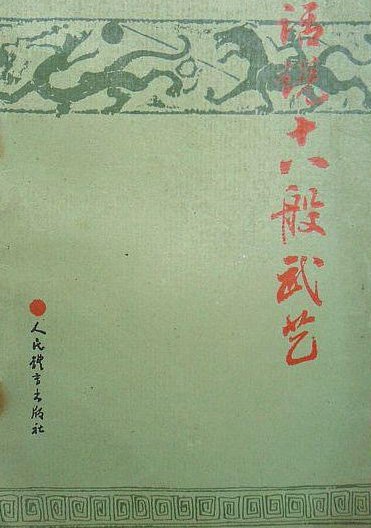 话说十八般武艺
人民體育出版社